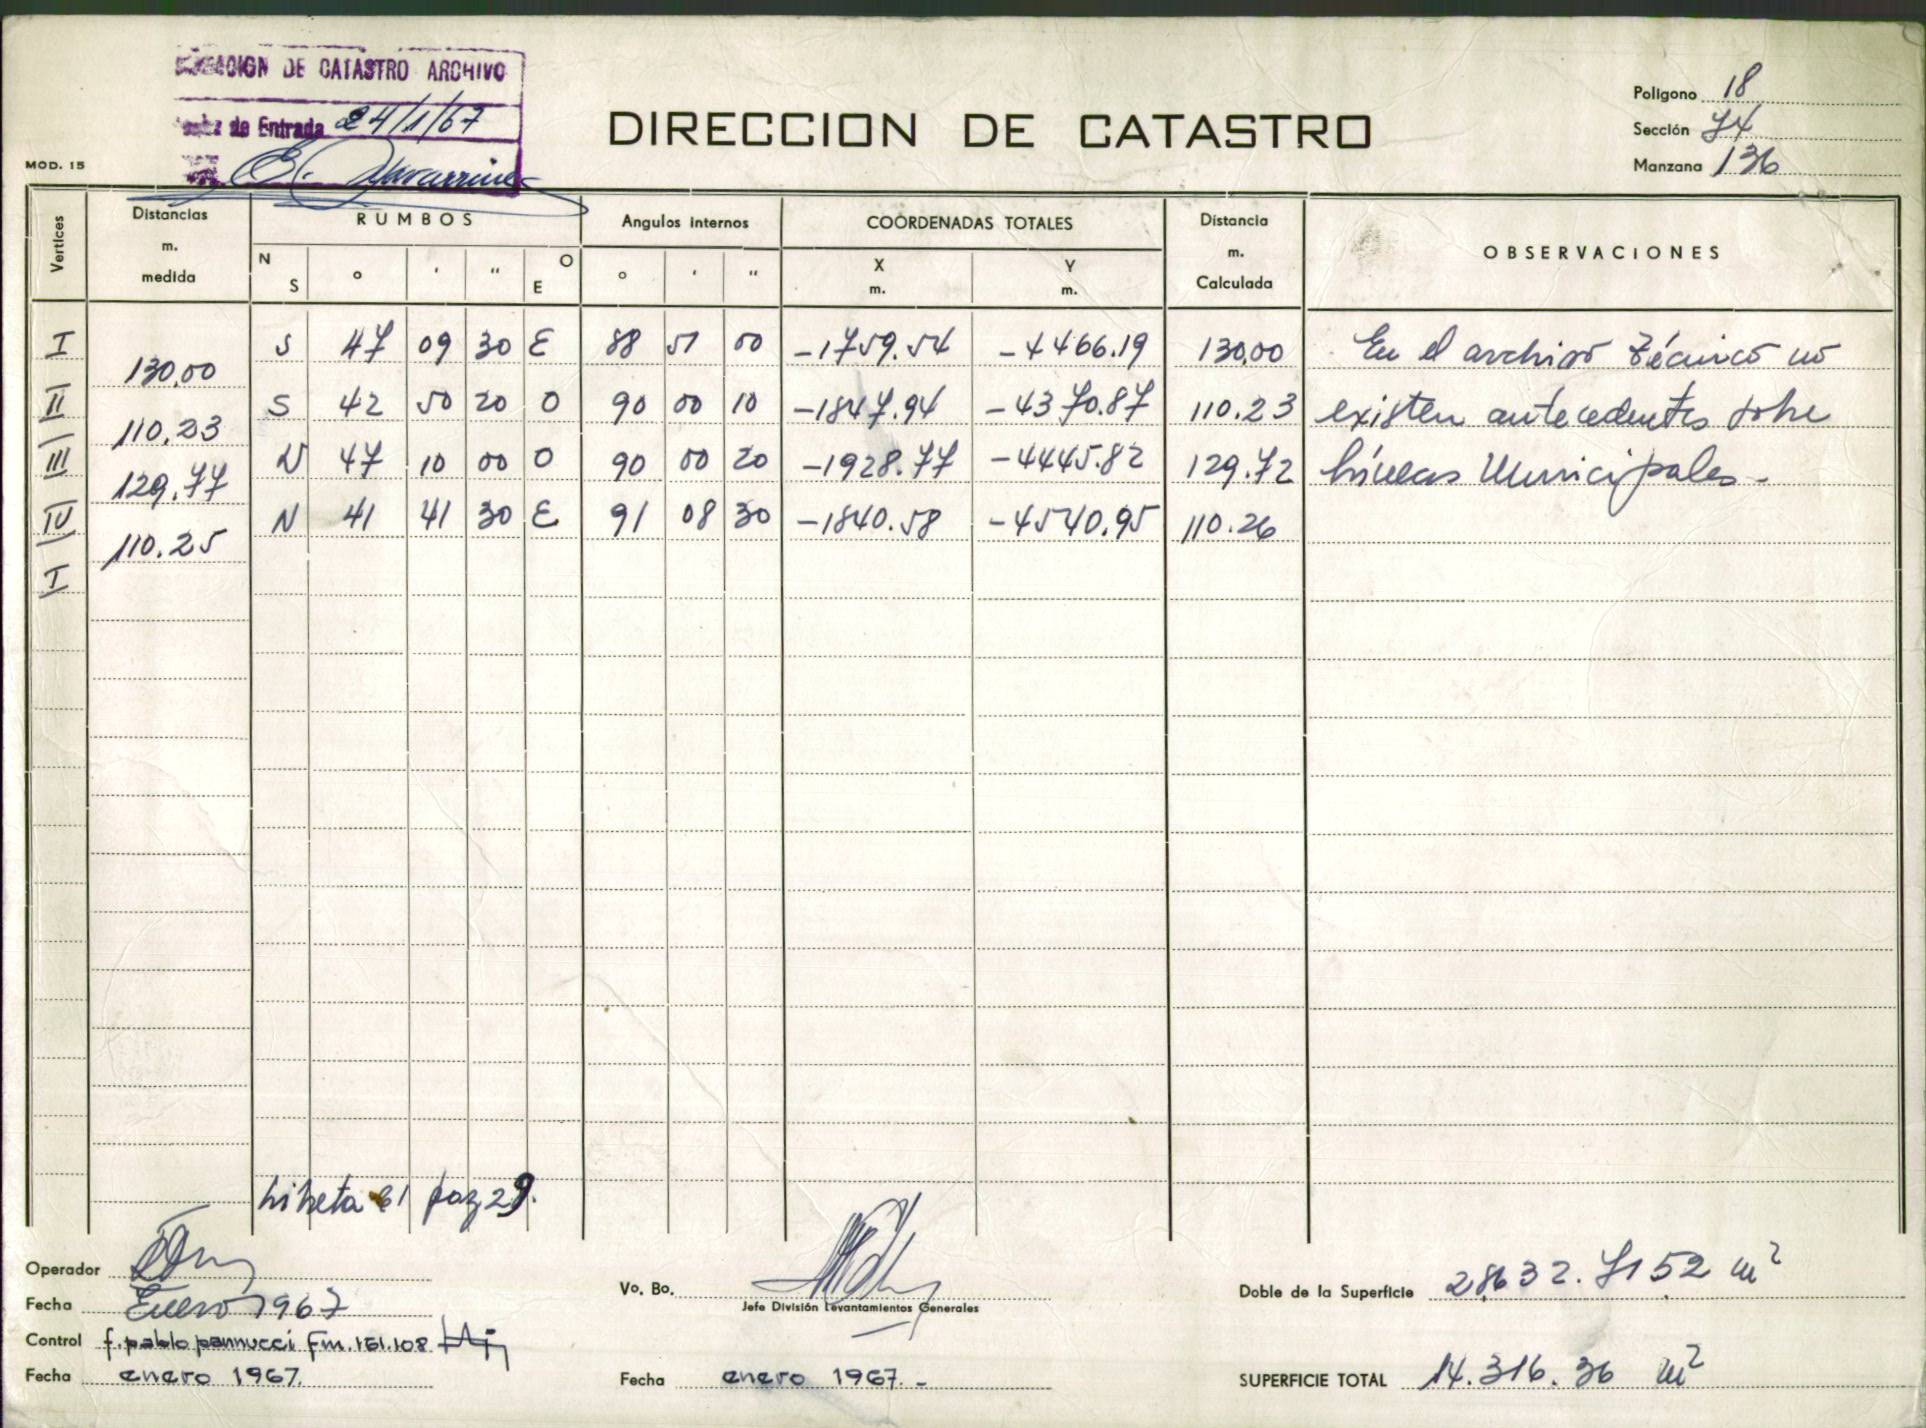 DE CATASTRO ARCHIVO
de Entrada 24/1/67
DIRECCION DE CATASTRO
Poligono 18
Sección 74
Manzana 136
MOD. 15
Vertices
Distancias
m.
medida
RUMBOS
N
S
° ' "
O
E
Angulos internos
° ' "
COORDENADAS TOTALES
X
m.
Y
m.
Distancia
m.
Calculada
OBSERVACIONES
I S 47 09 30 E 88 51 00 -1759.54 -4466.19 130,00 En el archivo técnico no
130,00
II S 42 50 20 O 90 00 10 -1847.94 -4370.87 110.23 existen antecedentes sobre
110.23
III N 47 10 00 O 90 00 20 -1928.77 -4445.82 129.72 Líneas Municipales.-
129.77
IV N 41 41 30 E 91 08 30 -1840.58 -4540.95 110.26
110.25
I
Libreta 61 pag 29.
Operador
Fecha Enero 1967
Control f. pablo pannucci Fm. 161.108
Fecha enero 1967.
Vo. Bo.
Jefe División Levantamientos Generales
Fecha enero 1967.-
Doble de la Superficie 28632.7152 m²
SUPERFICIE TOTAL 14.316.36 m²